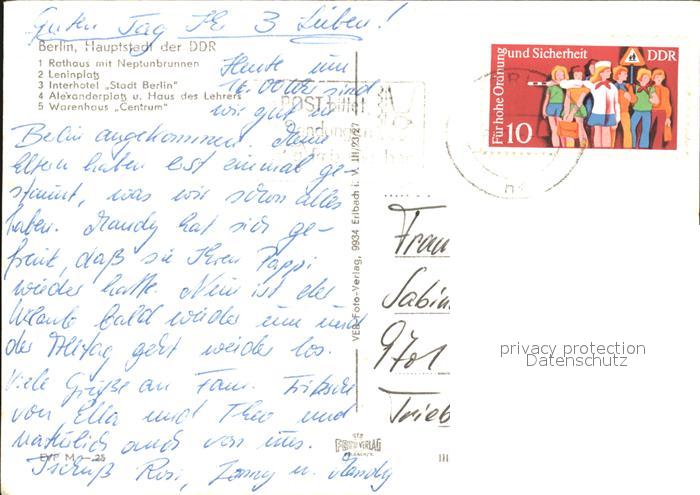 Guten Tag Ihr 3 Lieben!
Berlin, Hauptstadt der DDR
1 Rathaus mit Neptunbrunnen
2 Leninplatz
3 Interhotel „Stadt Berlin"
4 Alexanderplatz u. Haus des Lehrers
5 Warenhaus „Centrum"
Heute um
16.00 Uhr sind
wir gut in
Berlin angekommen. Meine
Eltern haben erst einmal ge-
staunt, was wir schon alles
haben. Mandy hat sich ge-
freut, daß sie Ihren Pappi
wieder hatte. Nun ist der
Urlaub bald wieder um und
der Alltag geht weider los.
Viele Grüße an Fam.
von Ella und Theo und
natürlich auch von uns.
Tschüß Rosi, u. Mandy
EVP M -.25
VEB Foto-Verlag, 9934 Erlbach i. V. III/23/27
POST bitte
Für hohe Ordnung und Sicherheit
DDR
10
Frau
Sabin
9701
Trieb
FOTO-VERLAG
III
privacy protection
Datenschutz